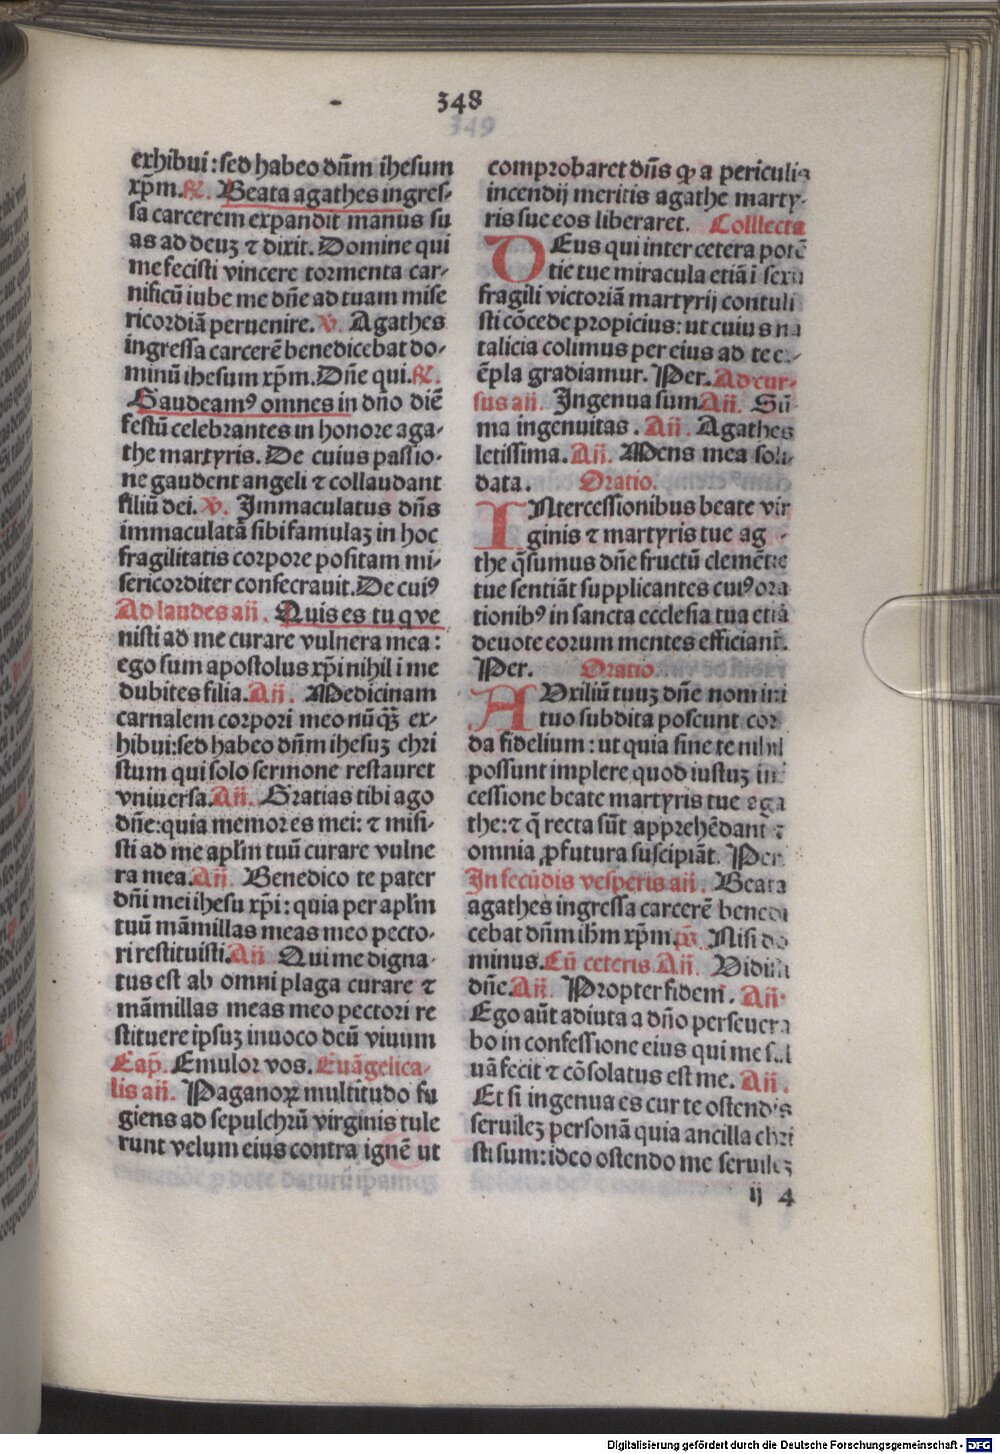 348
349
exhibui: sed habeo dn̄m ihesum
xp̄m. ℟. Beata agathes ingres-
sa carcerem expandit manus su
as ad deuꝫ ⁊ dixit. Domine qui
me fecisti vincere tormenta car-
nificū iube me dn̄e ad tuam mise
ricordiā peruenire. ℣. Agathes
ingressa carcerē benedicebat do-
minū ihesum xp̄m. Dn̄e qui. ℟.
Gaudeamꝰ omnes in dn̄o diē
festū celebrantes in honore aga-
the martyris. De cuius passio-
ne gaudent angeli ⁊ collaudant
filiū dei. ℣. Immaculatus dn̄s
immaculatā sibi famulaꝫ in hoc
fragilitatis corpore positam mi-
sericorditer consecrauit. De cuiꝰ
Ad laudes an̄. Quis es tu q ve
nisti ad me curare vulnera mea:
ego sum apostolus xp̄i nihil i me
dubites filia. An̄. Medicinam
carnalem corpori meo nūqꝫ̄ ex-
hibui: sed habeo dn̄m ihesuꝫ chri
stum qui solo sermone restauret
vniuersa. An̄. Gratias tibi ago
dn̄e: quia memor es mei: ⁊ misi-
sti ad me apl̄m tuū curare vulne
ra mea. An̄. Benedico te pater
dn̄i mei ihesu xp̄i: quia per apl̄m
tuū māmillas meas meo pecto-
ri restituisti. An̄ Qui me digna-
tus est ab omni plaga curare ⁊
māmillas meas meo pectori re
stituere ipsuꝫ inuoco deū viuum
Cap̄. Emulor vos. Euāgelica-
lis an̄. Paganoꝝ multitudo fu
giens ad sepulchrū virginis tule
runt velum eius contra ignē ut
comprobaret dn̄s ꝙ a periculis
incendij meritis agathe marty-
ris sue eos liberaret. Colllecta
DEus qui inter cetera potē
tie tue miracula etiā i sexu
fragili victoriā martyrij contuli
sti cōcede propicius: ut cuius na
talicia colimus per eius ad te e-
ēpla gradiamur. Per. Ad cur-
sus an̄. Ingenua sum. An̄. Sū-
ma ingenuitas. An̄. Agathes
letissima. An̄. Mens mea soli-
data. Oratio.
INtercessionibus beate vir
ginis ⁊ martyris tue ag-
the q̄sumus dn̄e fructū clemētie
tue sentiāt supplicantes cuiꝰ ora
tionibꝰ in sancta ecclesia tua etiā
deuote eorum mentes efficiant̄.
Per. Oratio
AUxiliū tuuꝫ dn̄e nomini
tuo subdita poscunt cor
da fidelium: ut quia sine te nihil
possunt implere quod iustuꝫ in
cessione beate martyris tue aga
the: ⁊ q̄ recta sūt apprehēdant ⁊
omnia ꝓfutura suscipiāt. Per
In secūdis vesperis an̄. Beata
agathes ingressa carcerē benedi
cebat dn̄m ihm̄ xp̄m. ps̄. Nisi do
minus. Cū ceteris. An̄. Vidisti
dn̄e. An̄. Propter fidem. An̄.
Ego aūt adiuta a dn̄o perseuera
bo in confessione eius qui me sal
uā fecit ⁊ cōsolatus est me. An̄.
Et si ingenua es cur te ostendis
seruileꝫ personā quia ancilla chri
sti sum: ideo ostendo me seruileꝫ
ij 4
Digitalisierung gefördert durch die Deutsche Forschungsgemeinschaft - DFG